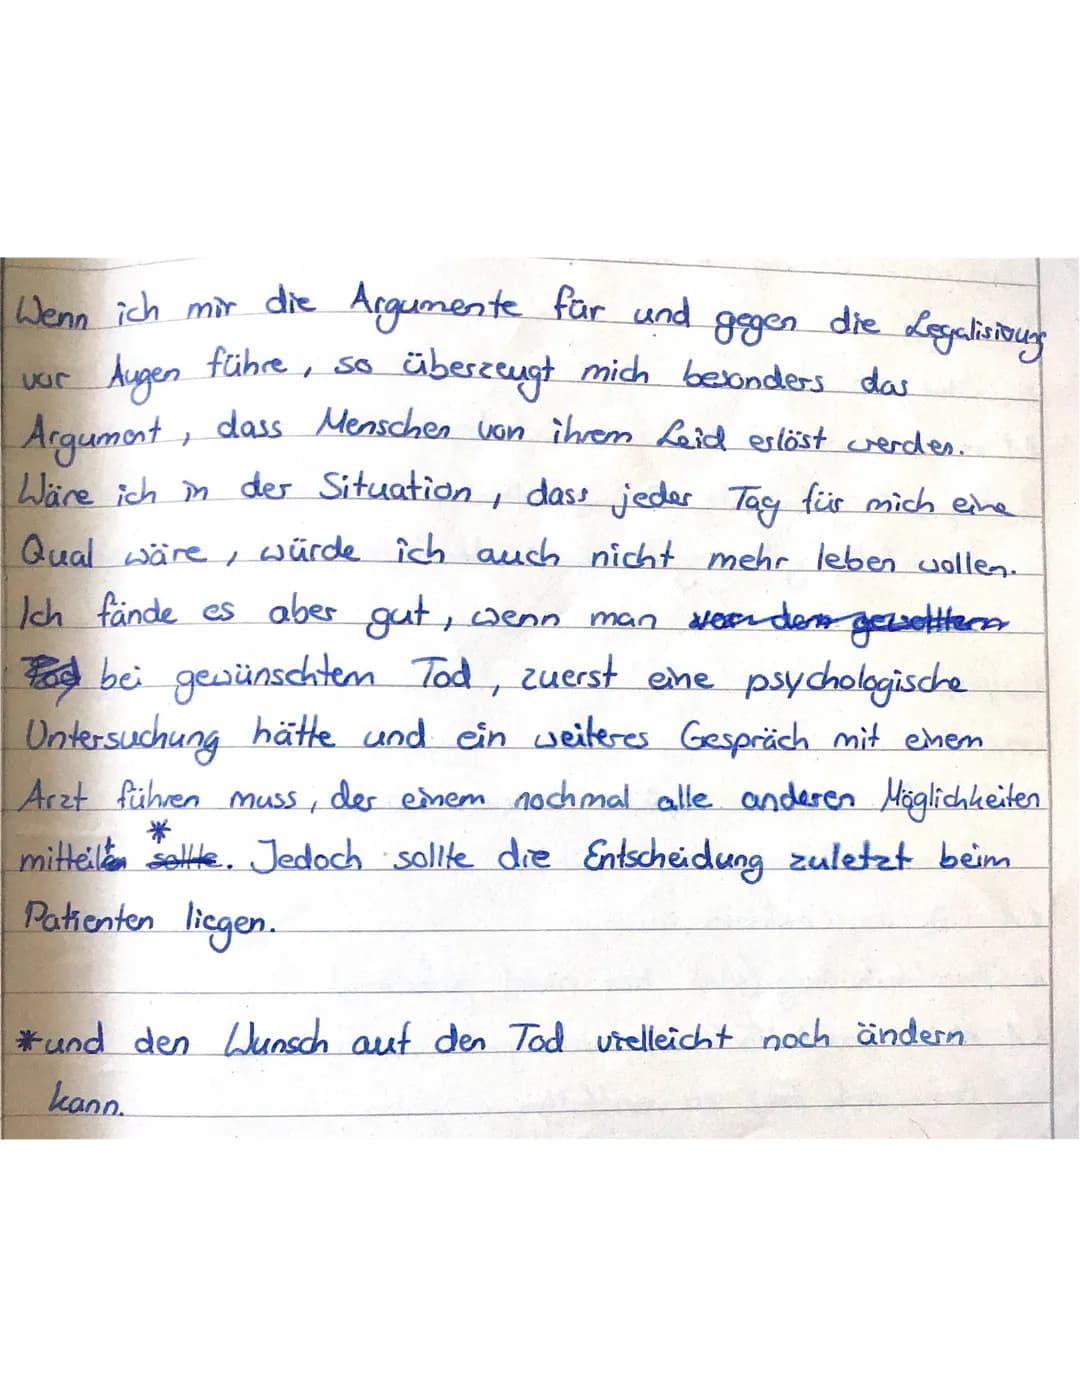 Wenn ich mir die Argumente für und gegen die Legalisirung
vor Augen führe, so überzeugt mich besonders das
Argument, dass Menschen von ihrem Leid erlöst werden.
Wäre ich in der Situation, dass jeder Tag für mich eine
Qual wäre, würde ich auch nicht mehr leben wollen.
Ich fände es aber gut, wenn man von dem gewollten
Tod bei gewünschtem Tod, zuerst eine psychologische
Untersuchung hätte und ein weiteres Gespräch mit einem
Arzt führen muss, der einem nochmal alle anderen Möglichkeiten
*
mitteilen sollte. Jedoch sollte die Entscheidung zuletzt beim
Patienten liegen.
*und den Wunsch auf den Tod vielleicht noch ändern
kann.